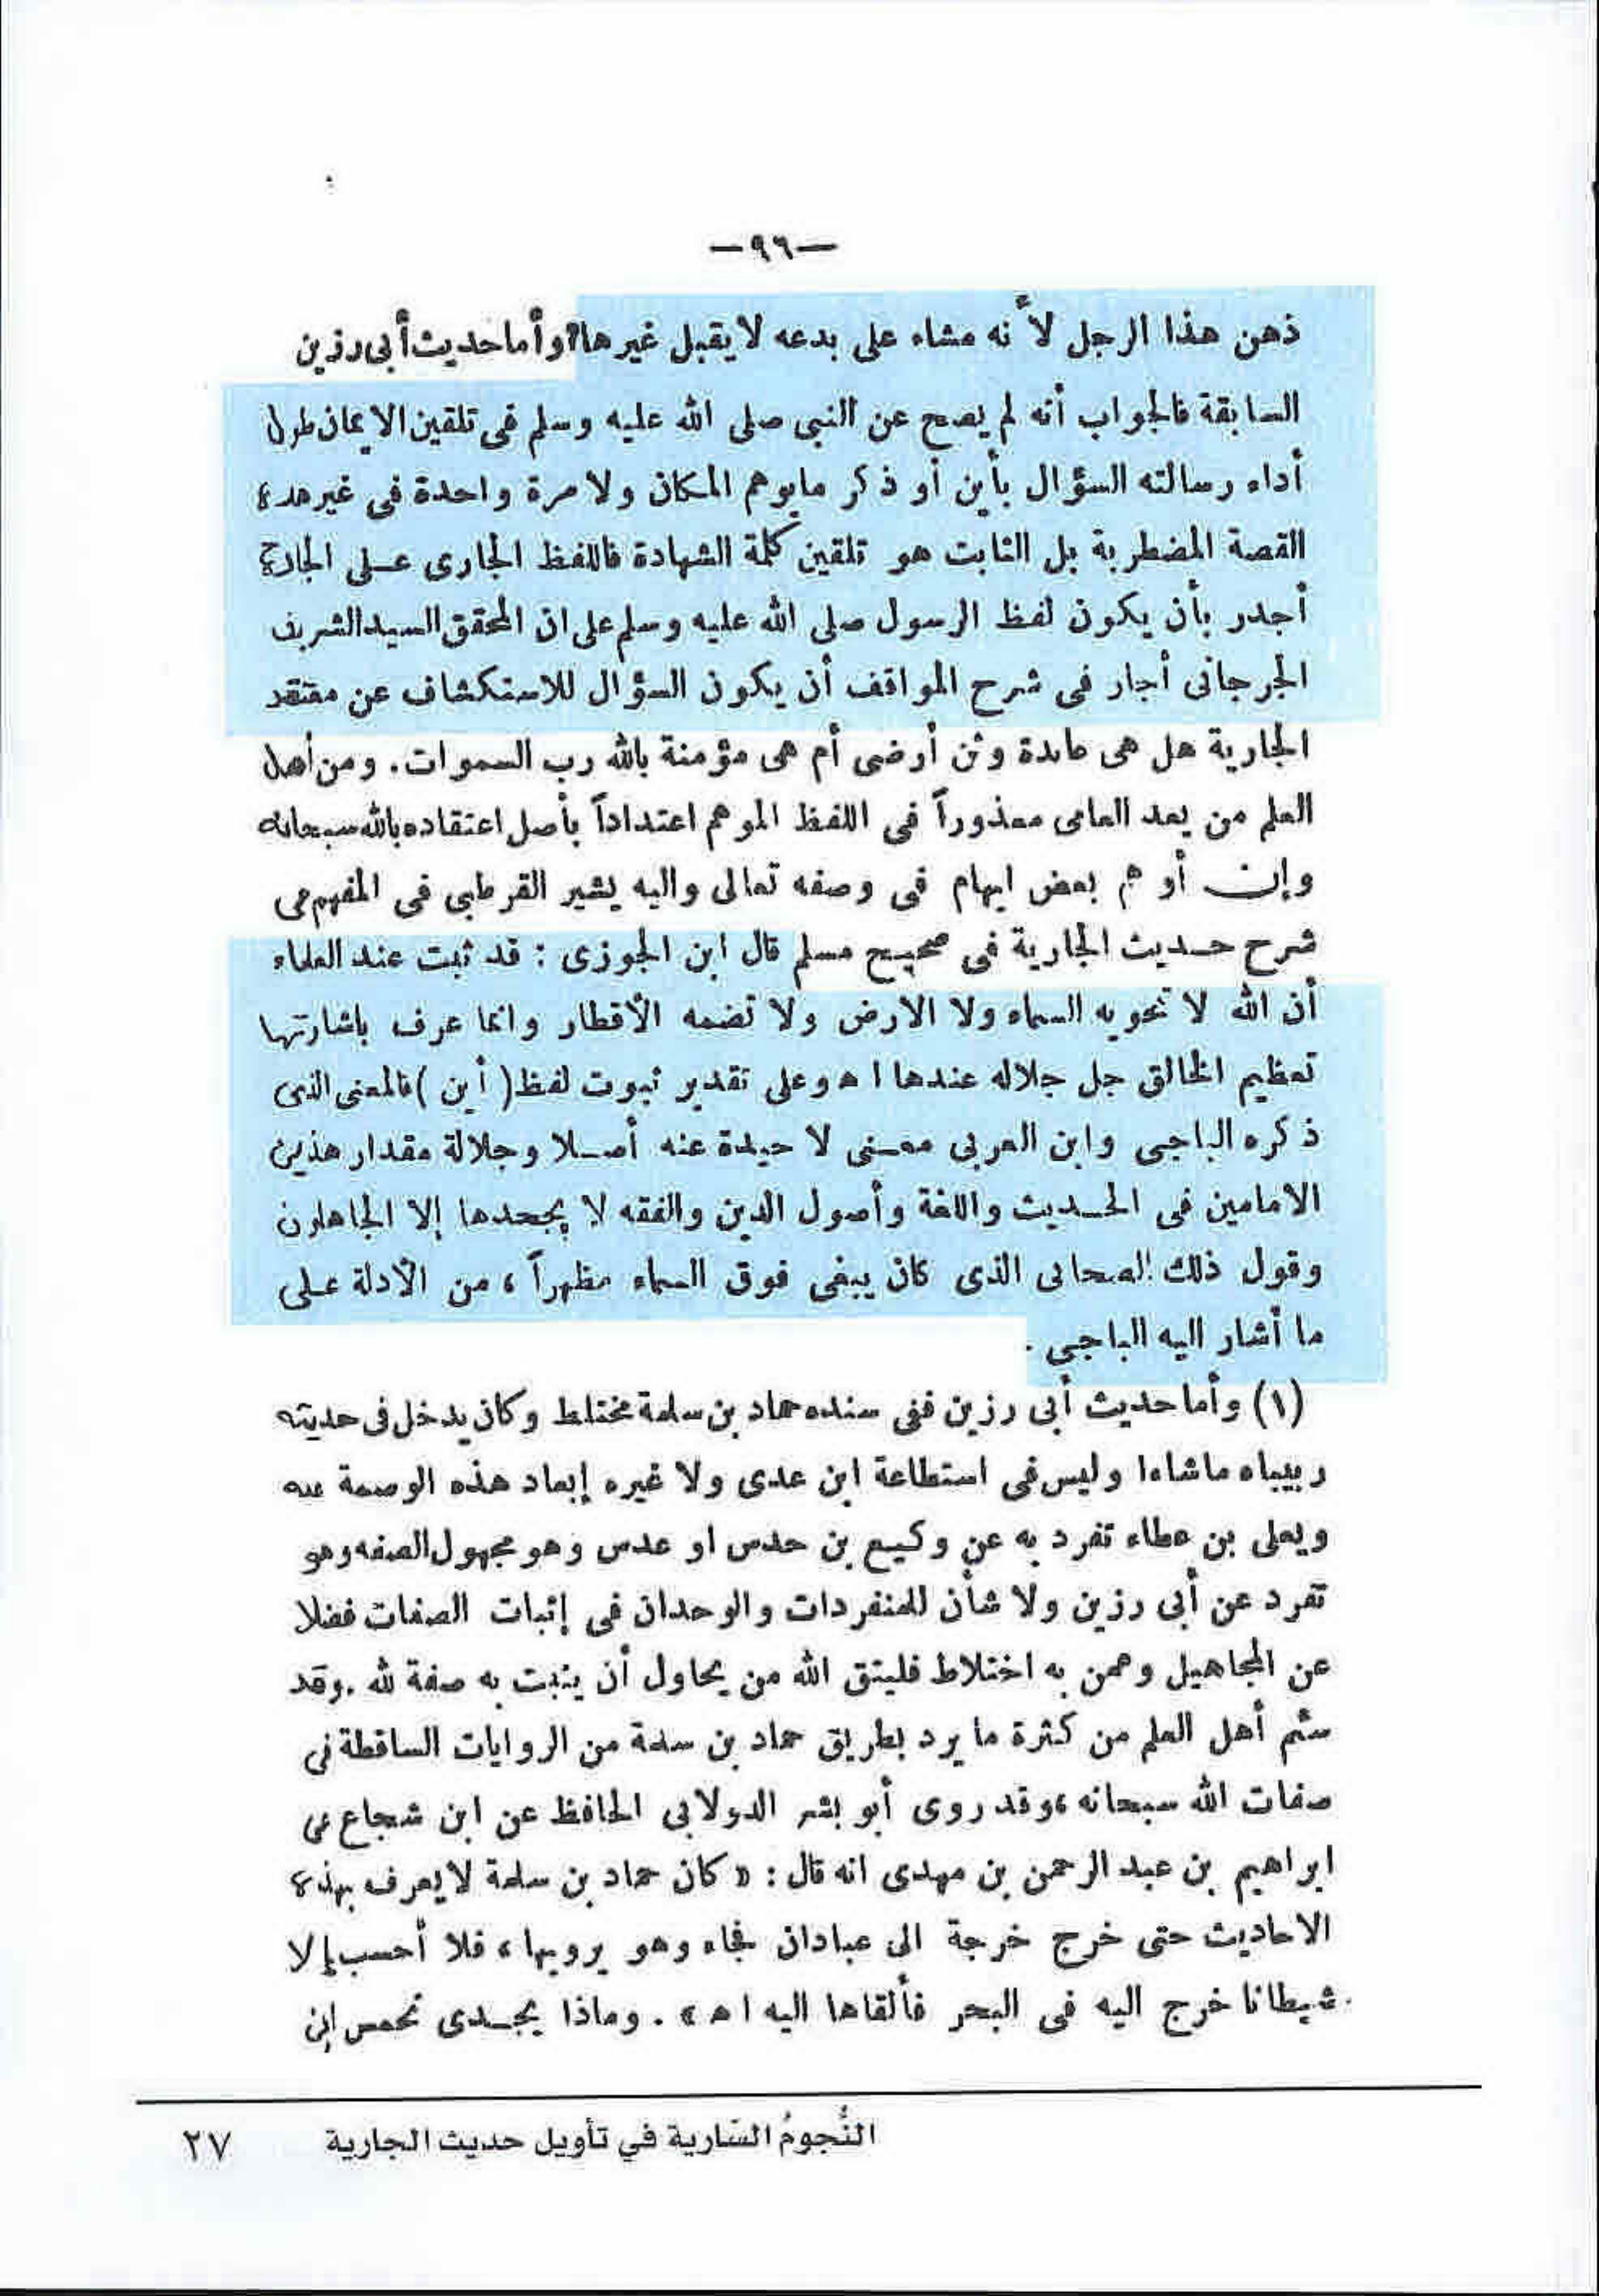 —٩٦—
ذهن هذا الرجل لأنه مشاه على بدعه لا يقبل غيرها وأما حديث أبى رزين
السابقة فالجواب أنه لم يصح عن النبى صلى الله عليه وسلم فى تلقين الايمان طول
أداء رسالته السؤال بأين أو ذكر مايوهم المكان ولا مرة واحدة فى غير هذه
القصة المضطربة بل الثابت هو تلقين كلمة الشهادة فاللفظ الجارى على الجادة
أجدر بأن يكون لفظ الرسول صلى الله عليه وسلم على ان المحقق السيد الشريف
الجرجانى أجار فى شرح المواقف أن يكون السؤال للاستكشاف عن معتقد
الجارية هل هى عابدة وثن أرضى أم هى مؤمنة بالله رب السموات. ومن أهل
العلم من يعد العامى معذوراً فى اللفظ الموهم اعتداداً بأصل اعتقاده بالله سبحانه
وإن أوهم بعض ايهام فى وصفه تعالى واليه يشير القرطبى فى المفهم فى
شرح حديث الجارية فى صحيح مسلم قال ابن الجوزى : قد ثبت عند العلماء
أن الله لا تحويه السماء ولا الارض ولا تضمه الأقطار وانما عرف باشارتها
تعظيم الخالق جل جلاله عندها ا ه وعلى تقدير ثبوت لفظ ( أين ) فالمعنى الذى
ذكره الباجى وابن العربى معنى لا حيدة عنه أصلا وجلالة مقدار هذين
الامامين فى الحديث واللغة وأصول الدين والفقه لا يجحدها إلا الجاهلون
وقول ذلك الصحابى الذى كان يبغى فوق السماء مظهراً ، من الأدلة على
ما أشار اليه الباجى .
(١) وأما حديث أبى رزين ففى سنده حماد بن سلمة مختلط وكان يدخل فى حديثه
ربيباه ماشاءا وليس فى استطاعة ابن عدى ولا غيره إبعاد هذه الوصمة عنه
ويعلى بن عطاء تفرد به عن وكيع بن حدس او عدس وهو مجهول الصفه وهو
تفرد عن أبى رزين ولا شأن للمنفردات والوحدان فى إثبات الصفات فضلا
عن المجاهيل وعمن به اختلاط فليتق الله من يحاول أن يثبت به صفة لله . وقد
سئم أهل العلم من كثرة ما يرد بطريق حماد بن سلمة من الروايات الساقطة فى
صفات الله سبحانه ، وقد روى أبو بشر الدولابى الحافظ عن ابن شجاع عن
ابراهيم بن عبد الرحمن بن مهدى انه قال : « كان حماد بن سلمة لا يعرف بهذه
الاحاديث حتى خرج خرجة الى عبادان فجاء وهو يرويها ، فلا أحسب إلا
شيطانا خرج اليه فى البحر فألقاها اليه ا ه » . وماذا يجدى تحمس ابن
النُّجومُ السَّارية في تأويل حديث الجارية ٢٧